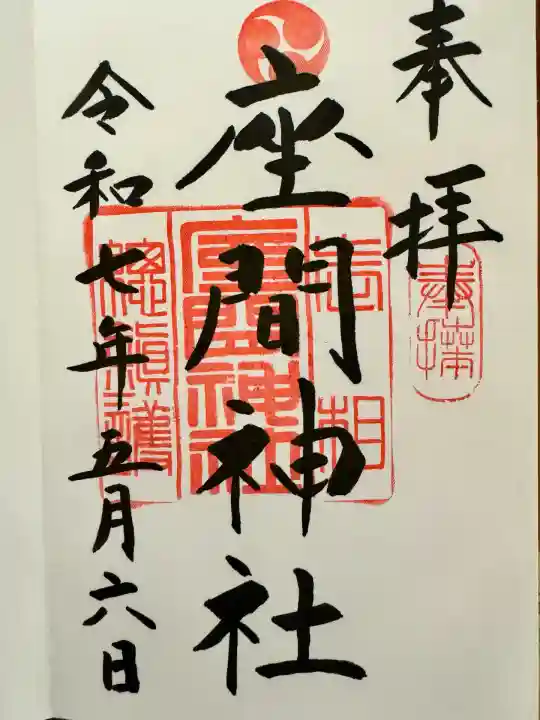 奉拝
座間神社
令和七年五月六日
奉拝
相
座間神社